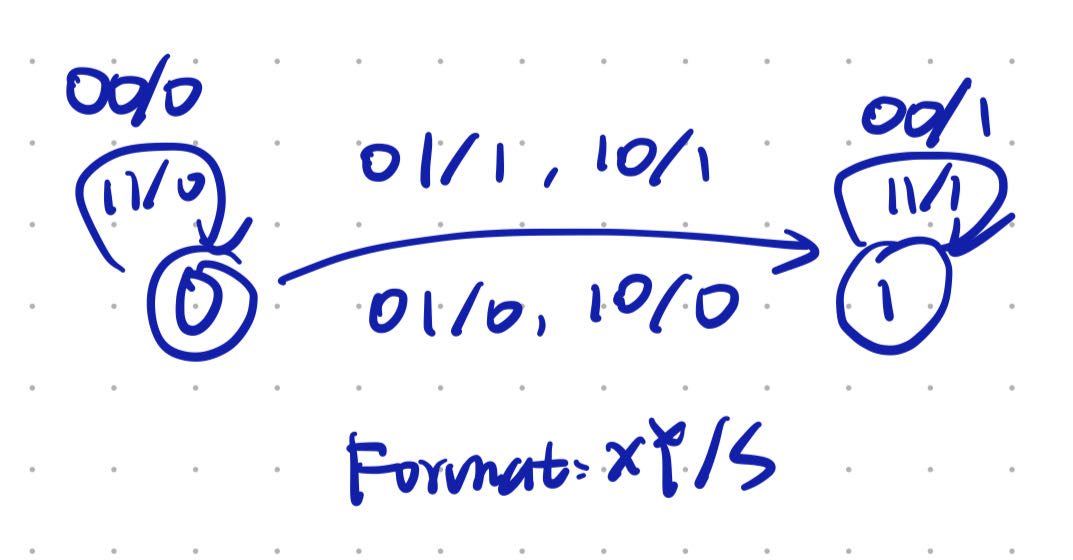 00/0
11/0
0
01/1, 10/1
01/0, 10/0
00/1
11/1
1
Format: XY/S